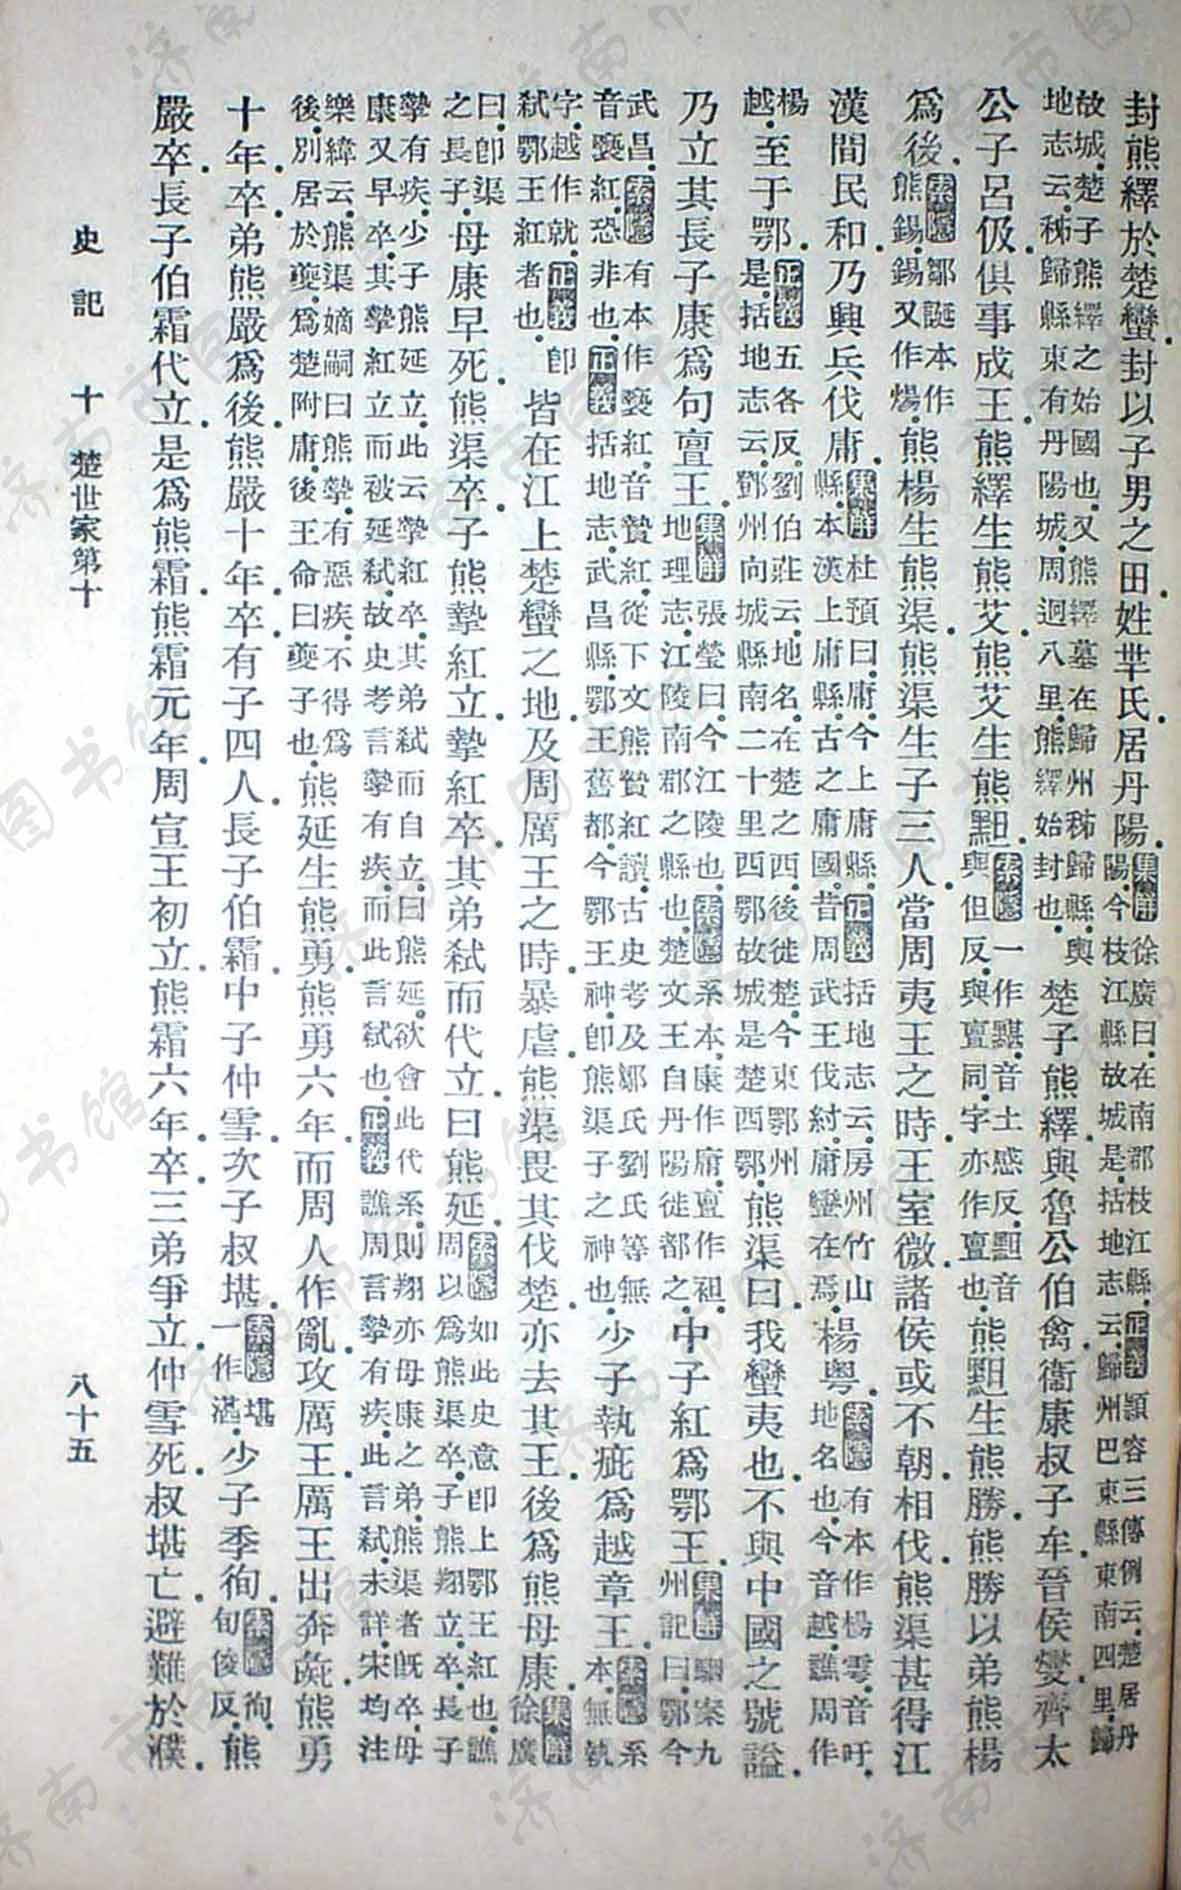 封熊繹於楚蠻封以子男之田姓羋氏居丹陽。集解徐廣曰在南郡枝江縣。正義潁容三傳例云楚居丹陽今枝江縣故城是括地志云歸州巴東縣東南四里歸
故城楚子熊繹之始國也又熊繹墓在歸州秭歸縣輿地志云秭歸縣東有丹陽城周迴八里熊繹始封也。楚子熊繹與魯公伯禽衞康叔子牟晉侯燮齊太
公子呂伋俱事成王。熊繹生熊艾熊艾生熊䵣。索隱一作黮音土感反䵣音與但反與亶同字亦作亶也。熊䵣生熊勝熊勝以弟熊楊
爲後。索隱鄒誕本作熊錫錫又作煬。熊楊生熊渠熊渠生子三人當周夷王之時王室微諸侯或不朝相伐熊渠甚得江
漢間民和乃興兵伐庸。集解杜預曰庸今上庸縣。正義括地志云房州竹山縣本漢上庸縣古之庸國昔周武王伐紂庸蠻在焉。楊粵。索隱有本作楊雩音吁地名也今音越譙周作
楊越。至于鄂。正義五各反劉伯莊云地名在楚之西後徙楚今東鄂州是括地志云鄧州向城縣南二十里西鄂故城是楚西鄂。熊渠曰我蠻夷也不與中國之號謚。
乃立其長子康爲句亶王。集解張瑩曰今江陵也。索隱系本康作庸亶作袒地理志江陵南郡之縣也楚文王自丹陽徙都之。中子紅爲鄂王。集解駰案九州記曰鄂今
武昌。索隱有本作䙝紅音贄紅從下文熊贄紅讀古史考及鄒氏劉氏等無音䙝紅恐非也。正義括地志武昌縣鄂王舊都今鄂王神卽熊渠子之神也。少子執疵爲越章王。索隱系本無執
字越作就。正義卽弒鄂王紅者也。皆在江上楚蠻之地。及周厲王之時暴虐。熊渠畏其伐楚。亦去其王。後爲熊母康。集解徐廣
曰卽渠之長子。母康早死。熊渠卒。子熊摯紅立。摯紅卒。其弟弒而代立曰熊延。索隱如此史意卽上鄂王紅也譙周以爲熊渠卒子熊翔立卒長子
摯有疾少子熊延立此云摯紅卒其弟弒而自立曰熊延欲會此代系則翔亦母康之弟熊渠者旣卒母康又早卒其摯紅立而被延弒故史考言摯有疾而此言弒也。正義譙周言摯有疾此言弒未詳宋均注
樂緯云熊渠嫡嗣曰熊摯有惡疾不得爲後別居於夔爲楚附庸後王命曰夔子也。熊延生熊勇。熊勇六年。而周人作亂。攻厲王。厲王出奔彘。熊勇
十年。卒。弟熊嚴爲後。熊嚴十年。卒。有子四人。長子伯霜。中子仲雪。次子叔堪。索隱堪一作湛。少子季徇。索隱徇旬俊反。熊
嚴卒。長子伯霜代立。是爲熊霜。熊霜元年。周宣王初立。熊霜六年。卒。三弟爭立。仲雪死。叔堪亡。避難於濮。
史記 十 楚世家第十 八十五